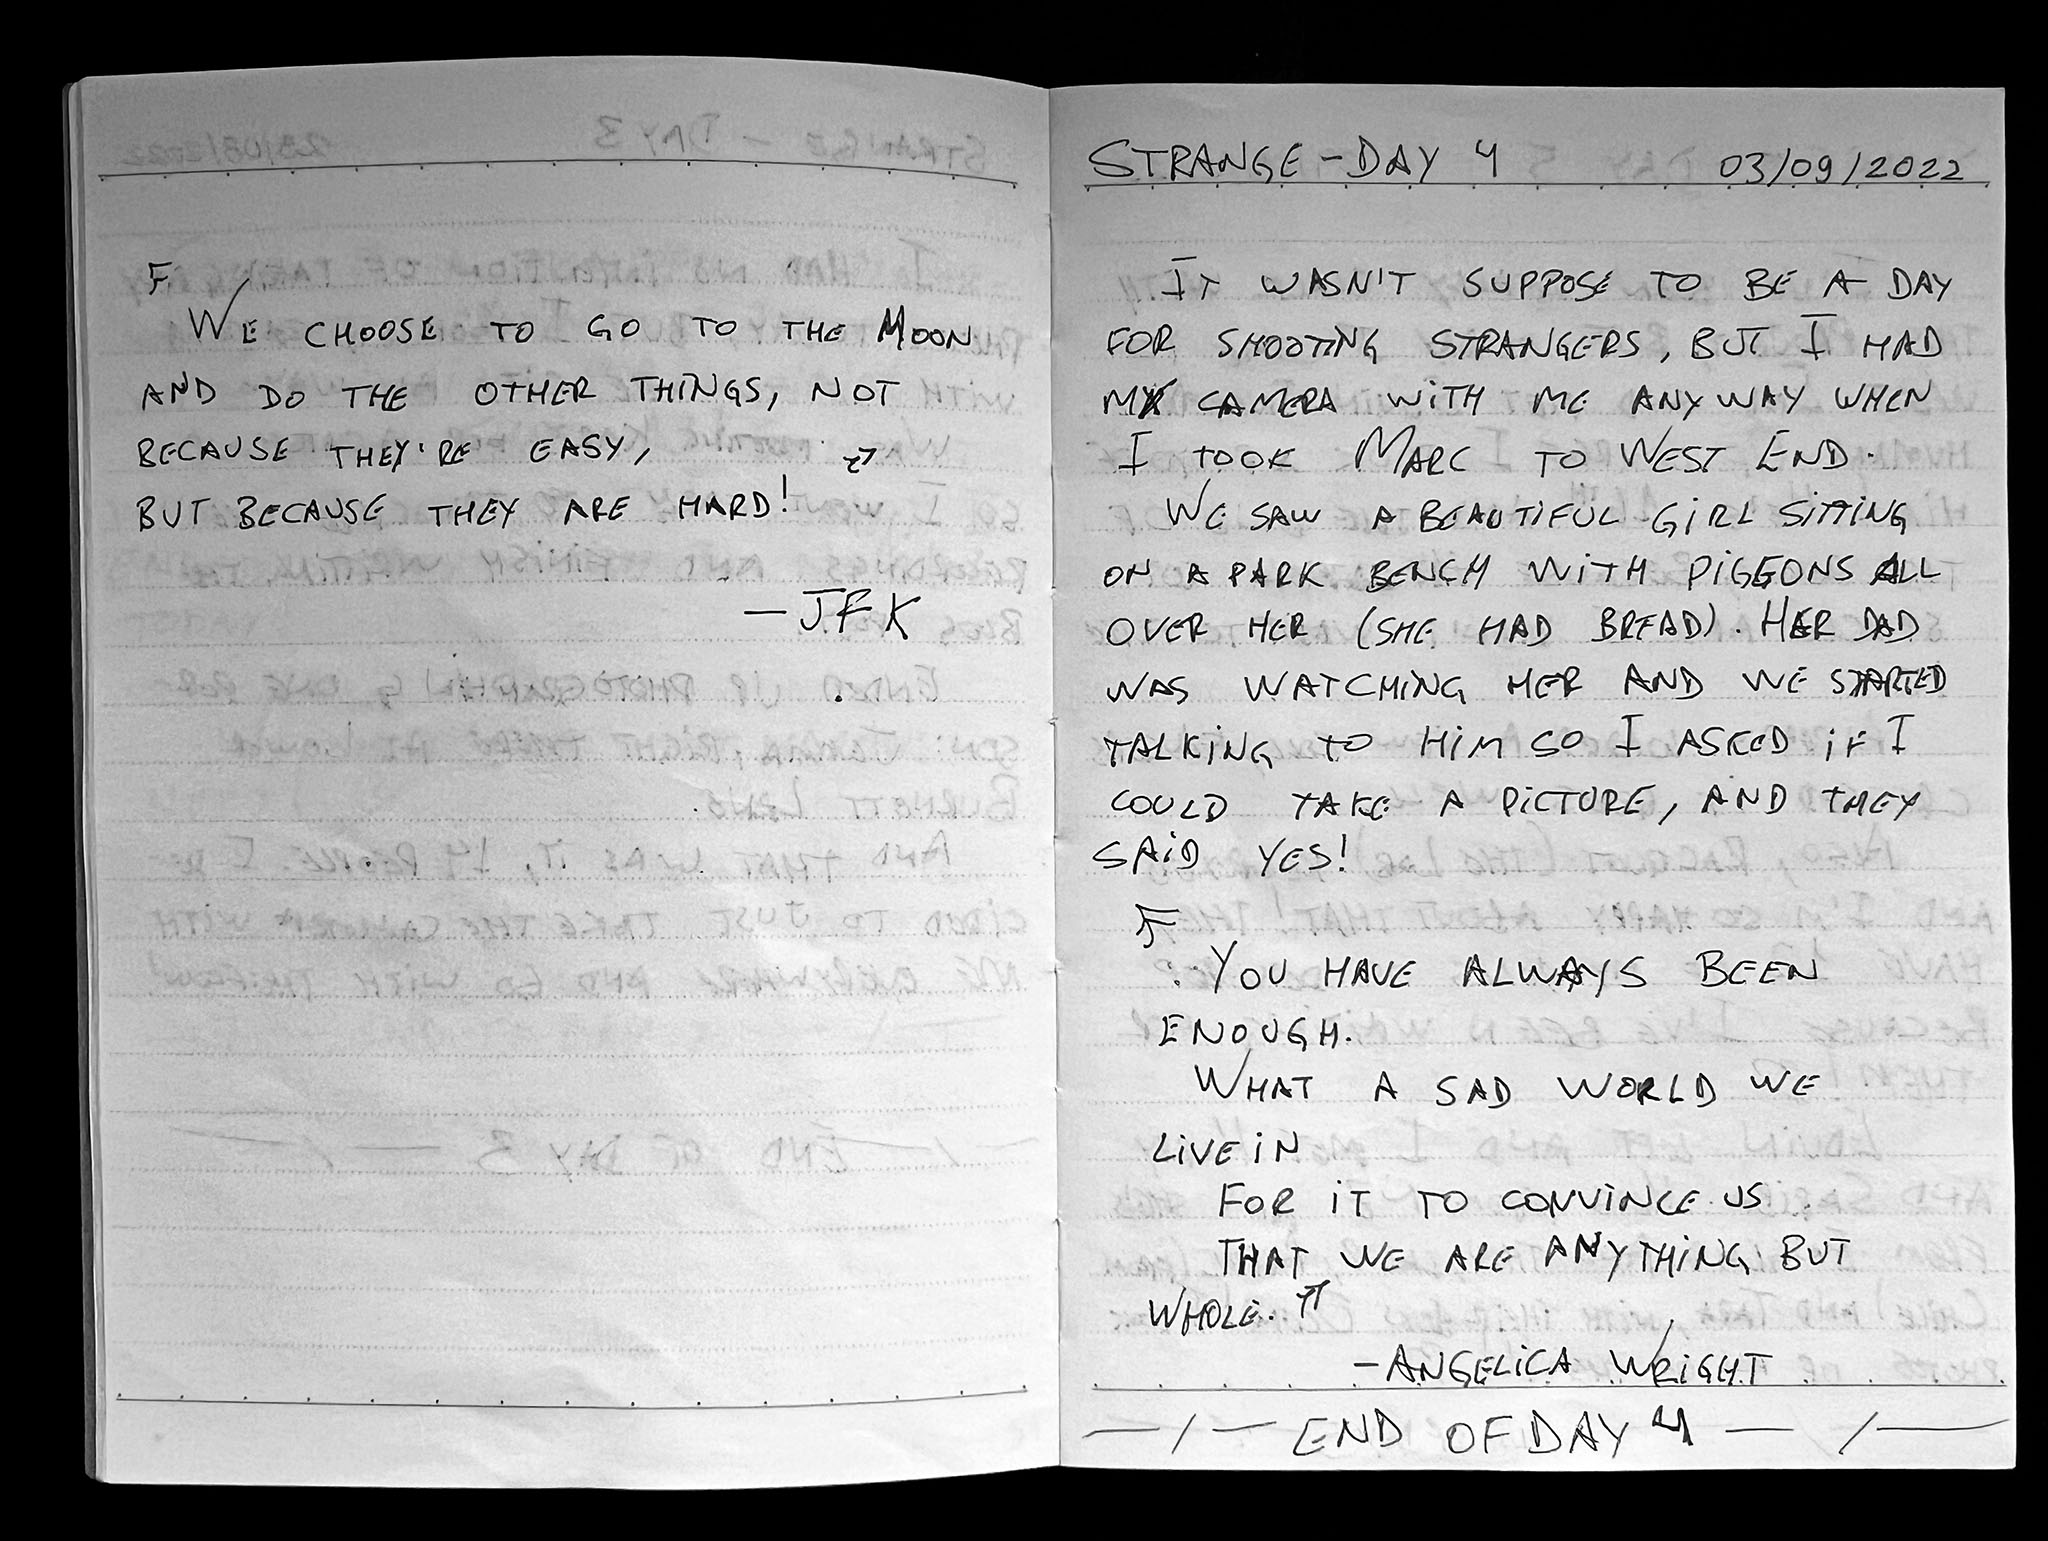 We choose to go to the Moon
and do the other things, not
because they're easy,
but because they are hard!
— JFK
STRANGE - DAY 4 03/09/2022
It wasn't suppose to be a day
for shooting strangers, but I had
my camera with me anyway when
I took Marc to West End.
We saw a beautiful girl sitting
on a park bench with piggeons all
over her (she had bread). Her dad
was watching her and we started
talking to him so I asked if I
could take a picture, and they
said yes!
You have always been
enough.
What a sad world we
live in
for it to convince us
that we are anything but
whole.
- Angelica Wright
— / — END OF DAY 4 — / —